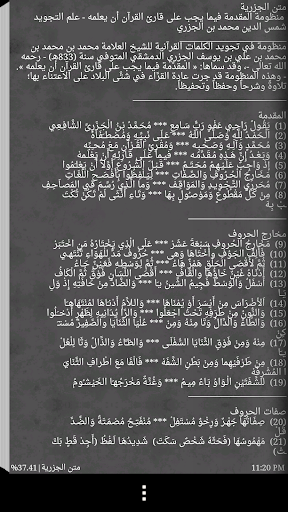 متن الجزرية
منظومة المقدمة فيما يجب على قارئ القرآن أن يعلمه - علم التجويد
شمس الدين محمد بن الجزري
منظومة في تجويد الكلمات القرآنية للشيخ العلامة محمد بن محمد بن
محمد بن علي بن يوسف الجزري الدمشقي المتوفى سنة (833هـ) - رحمه
الله تعالى -، وقد سماها: « المقدمة فيما يجب على قارئ القرآن أن يعلمه ».
- وهذه المنظومة قد جرت عادة القراء في شتى البلاد على الاعتناء بها؛
تلاوةً وشرحاً وحفظاً وتحفيظاً.
المقدمة
(1) يَقُولُ رَاجِي عَفْوِ رَبٍّ سَامِعِ *** مُحَمَّدُ بْنُ الْجَزَرِيِّ الشَّافِعِي
(2) الْحَمْدُ لِلَّهِ وَصَلَّى اللَّهُ *** عَلَى نَبِيِّهِ وَمُصْطَفَاهُ
(3) مُحَمَّدٍ وَآلِهِ وَصَحْبِهِ *** وَمُقْرِئِ الْقُرْآنِ مَعْ مُحِبِّهِ
(4) وَبَعْدُ إِنَّ هَذِهِ مُقَدِّمَهْ *** فِيمَا عَلَى قَارِئِهِ أَنْ يَعْلَمَهْ
(5) إِذْ وَاجِبٌ عَلَيْهِمُ مُحَتَّمُ *** قَبْلَ الشُّرُوعِ أَوَّلاً أَنْ يَعْلَمُوا
(6) مَخَارِجَ الْحُرُوفِ وَالصِّفَاتِ *** لِيَلْفِظُوا بِأَفْصَحِ اللُّغَاتِ
(7) مُحَرِّرِي التَّجْوِيدِ وَالْمَوَاقِفِ *** وَمَا الَّذِي رُسِّمَ فِي الْمَصَاحِفِ
(8) مِنْ كُلِّ مَقْطُوعٍ وَمَوْصُولٍ بِهَا *** وَتَاءِ أُنْثَى لَمْ تَكُنْ تُكْتَبْ
بِهَ
مخارج الحروف
(9) مَخَارِجُ الْحُرُوفِ سَبْعَةَ عَشَرْ *** عَلَى الَّذِي يَخْتَارُهُ مَنِ اخْتَبَرْ
(10) فَأَلِفُ الْجَوْفِ وَأُخْتَاهَا وَهِي *** حُرُوفُ مَدٍّ لِلْهَوَاءِ تَنْتَهِي
(11) ثُمَّ لِأَقْصَى الْحَلْقِ هَمْزٌ هَاءُ *** ثُمَّ لِوَسْطِهِ فَعَيْنٌ حَاءُ
(12) أَدْنَاهُ غَيْنٌ خَاؤُهَا وَالْقَافُ *** أَقْصَى اللِّسَانِ فَوْقُ ثُمَّ الْكَافُ
(13) أَسْفَلُ وَالْوَسْطُ فَجِيمُ الشِّينُ يَا *** وَالضَّادُ مِنْ حَافَتِهِ إِذْ وَلِيَا
(14) لَاضْرَاسَ مِنْ أَيْسَرَ أَوْ يُمْنَاهَا *** وَاللَّامُ أَدْنَاهَا لِمُنْتَهَاهَا
(15) وَالنُّونُ مِنْ طَرَفِهِ تَحْتُ اجْعَلُوا *** وَالرَّا يُدَانِيهِ لِظَهْرٍ أَدْخَلُوا
(16) وَالطَّاءُ وَالدَّالُ وَتَا مِنْهُ وَمِنْ *** عُلْيَا الثَّنَايَا وَالصَّفِيرُ مُسْتَ
كِنْ
(17) مِنْهُ وَمِنْ فَوْقِ الثَّنَايَا السُّفْلَى *** وَالظَّاءُ وَالذَّالُ وَثَا لِلْعُلْ
(18) مِنْ طَرَفَيْهِمَا وَمِنْ بَطْنِ الشَّفَهْ *** فَالْفَا مَعَ اطْرَافِ الثَّنَايَا
الْمُشْرِفَهْ
(19) لِلشَّفَتَيْنِ الْوَاوُ بَاءٌ مِيمُ *** وَغُنَّةٌ مَخْرَجُهَا الْخَيْشُومُ
صفات الحروف
(20) صِفَاتُهَا جَهْرٌ وَرِخْوٌ مُسْتَفِلْ *** مُنْفَتِحٌ مُصْمَتَةٌ وَالضِّدَّ قُلْ
(21) مَهْمُوسُهَا (فَحَثَّهُ شَخْصٌ سَكَتَ) شَدِيدُهَا لَفْظُ (أَجِدْ قَطٍ بَكَ
تْ)
%37.41 | متن الجزرية
11:20 PM